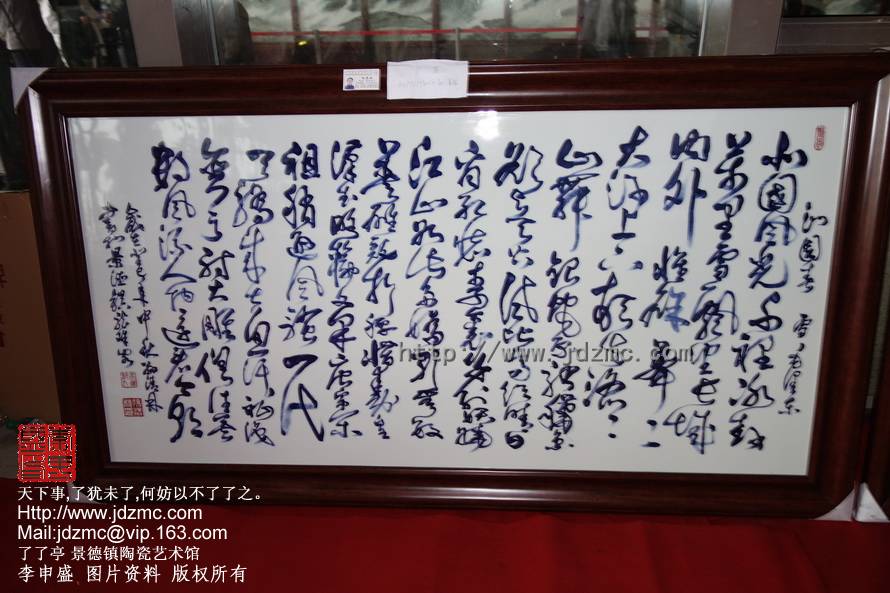 沁園春 雪 毛泽东
北國風光千里冰封
萬里雪飄望長城
内外惟餘莽〻
大河上下頓失滔〻
山舞銀蛇原馳蠟象
欲與天公試比高須晴日
看紅装素裹分外妖嬈
江山如此多嬌引無數
英雄競折腰惜秦皇
漢武略輸文采唐宗宋
祖稍遜風騷一代
天驕成吉思汗祇識
彎弓射大雕俱往矣
數風流人物還看今朝
http://www.jdzmc.com
天下事,了犹未了,何妨以不了了之。
Http://www.jdzmc.com
Mail:jdzmc@vip.163.com
了了亭 景德镇陶瓷艺术馆
李申盛 图片资料 版权所有